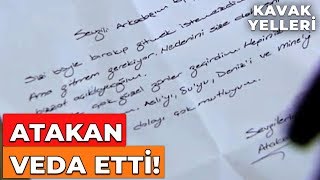 KAVAK
YELLERİ
Sevgili Arkadaşım
Sizi böyle bırakıp gitmek istemezdim
Ama gitmem gerekiyor. Nedenini size
bizzat açıklayacağım.
çok güzel günler geçirdim. Hepiniz
Aslı'yı, Su'yu, Deniz'i ve Mine'yi
dolayı çok mutluyum.
Sevgiler
Atakan
ATAKAN
VEDA ETTİ!